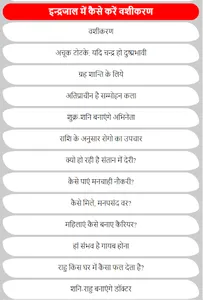 इन्द्रजाल में कैसे करें वशीकरण
वशीकरण
अचूक टोटके: यदि चन्द्र हो दुष्प्रभावी
ग्रह शान्ति के लिये
अतिप्राचीन है सम्मोहन कला
शुक्र-शनि बनाएंगे अभिनेता
राशि के अनुसार रोगो का उपचार
क्यो हो रही है संतान में देरी?
कैसे पाएं मनचाही नौकरी?
कैसे मिले, मनपसंद वर?
महिलाएं कैसे बनाए कैरियर?
हां संभव है गायब होना
राहु किस घर में कैसा फल देता है?
शनि-राहु बनाएंगे डॉक्टर